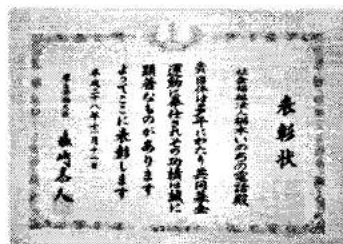 表彰状
社会福祉法人栃木いのちの電話殿
貴団体は多年にわたり共同募金
運動に奉仕されその功績は誠に
顕著なものがあります
よってここに表彰します
平成二十八年十一月十八日
厚生労働大臣